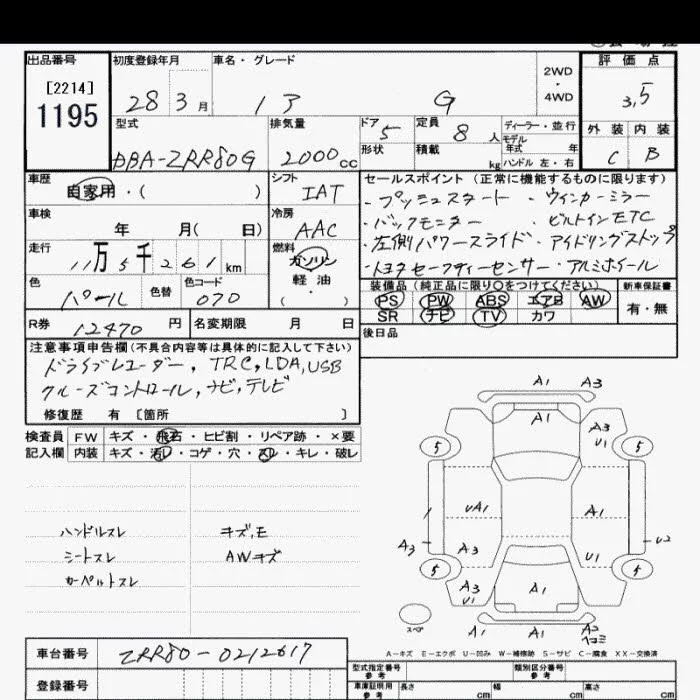 出品番号
[2214]
1195
初度登録年月
28 3月
車名・グレード
G
2WD
・
4WD
評価点
3.5
外装 内装
C B
型式
DBA-ZRR80G
排気量
2000cc
ドア
5
定員
8人
形状
積載
kg
ディーラー・並行
モデル
年式 年
ハンドル 左・右
車歴
自家用・( )
シフト
IAT
車検
年 月( 日)
冷房
AAC
走行
11万5千261km
燃料
ガソリン
軽・油
・( )
色
パール
色替
色コード
070
R券
12470円
名変期限 月 日
セールスポイント(正常に機能するものに限ります)
・プッシュスタート ・ウィンカーミラー
・バックモニター ・ビルトインETC
・左側パワースライド・アイドリングストップ
・トヨタセーフティーセンサー・アルミホイール
装備品(純正品に限り○をつけてください)
PS PW ABS エアB AW
SR ナビ TV カワ
新車保証書
有・無
後日品
注意事項申告欄(不具合内容等は具体的に記入して下さい)
ドライブレコーダー, TRC, LDA, USB
クルーズコントロール, ナビ, テレビ
修復歴 有 [箇所 ]
検査員
記入欄
FW キズ・飛石・ヒビ割・リペア跡・×要
内装 キズ・汚レ・コゲ・穴・スレ・キレ・破レ
ハンドルスレ
シートスレ
カーペットスレ
キズ,E
AWキズ
A1 A3
A1
A3
U1
5 5
UA1 A1
A3 A3 U1 U2
5 5
A3
U1
A1
スペア
A1 A1 A2
ヘコミ
A-キズ E-エクボ U-凹み W-補修跡 S-サビ C-腐食 XX-交換済
車台番号
ZRR80-0212617
登録番号
型式指定番号
参考
類別区分番号
参考
車庫証明用
参考
長さ cm
幅 cm
高さ cm